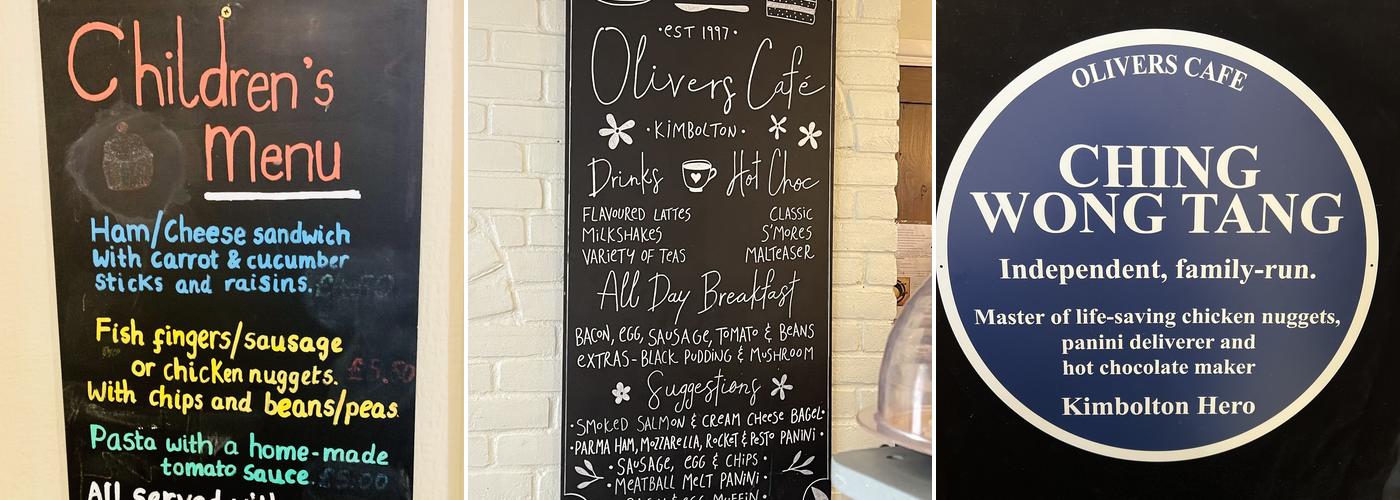 Children's
Menu
Ham/Cheese sandwich
with carrot & cucumber
sticks and raisins.
Fish fingers/sausage
or chicken nuggets. £5.50
With chips and beans/peas.
Pasta with a home-made
tomato sauce. £5.00
All served with
·EST 1997·
Olivers Café
·KIMBOLTON·
Drinks Hot Choc
FLAVOURED LATTES CLASSIC
MILKSHAKES S'MORES
VARIETY OF TEAS MALTEASER
All Day Breakfast
BACON, EGG, SAUSAGE, TOMATO & BEANS
EXTRAS - BLACK PUDDING & MUSHROOM
Suggestions
·SMOKED SALMON & CREAM CHEESE BAGEL·
·PARMA HAM, MOZZARELLA, ROCKET & PESTO PANINI·
·SAUSAGE, EGG & CHIPS·
·MEATBALL MELT PANINI·
& EGG MUFFIN
OLIVERS CAFE
CHING
WONG TANG
Independent, family-run.
Master of life-saving chicken nuggets,
panini deliverer and
hot chocolate maker
Kimbolton Hero